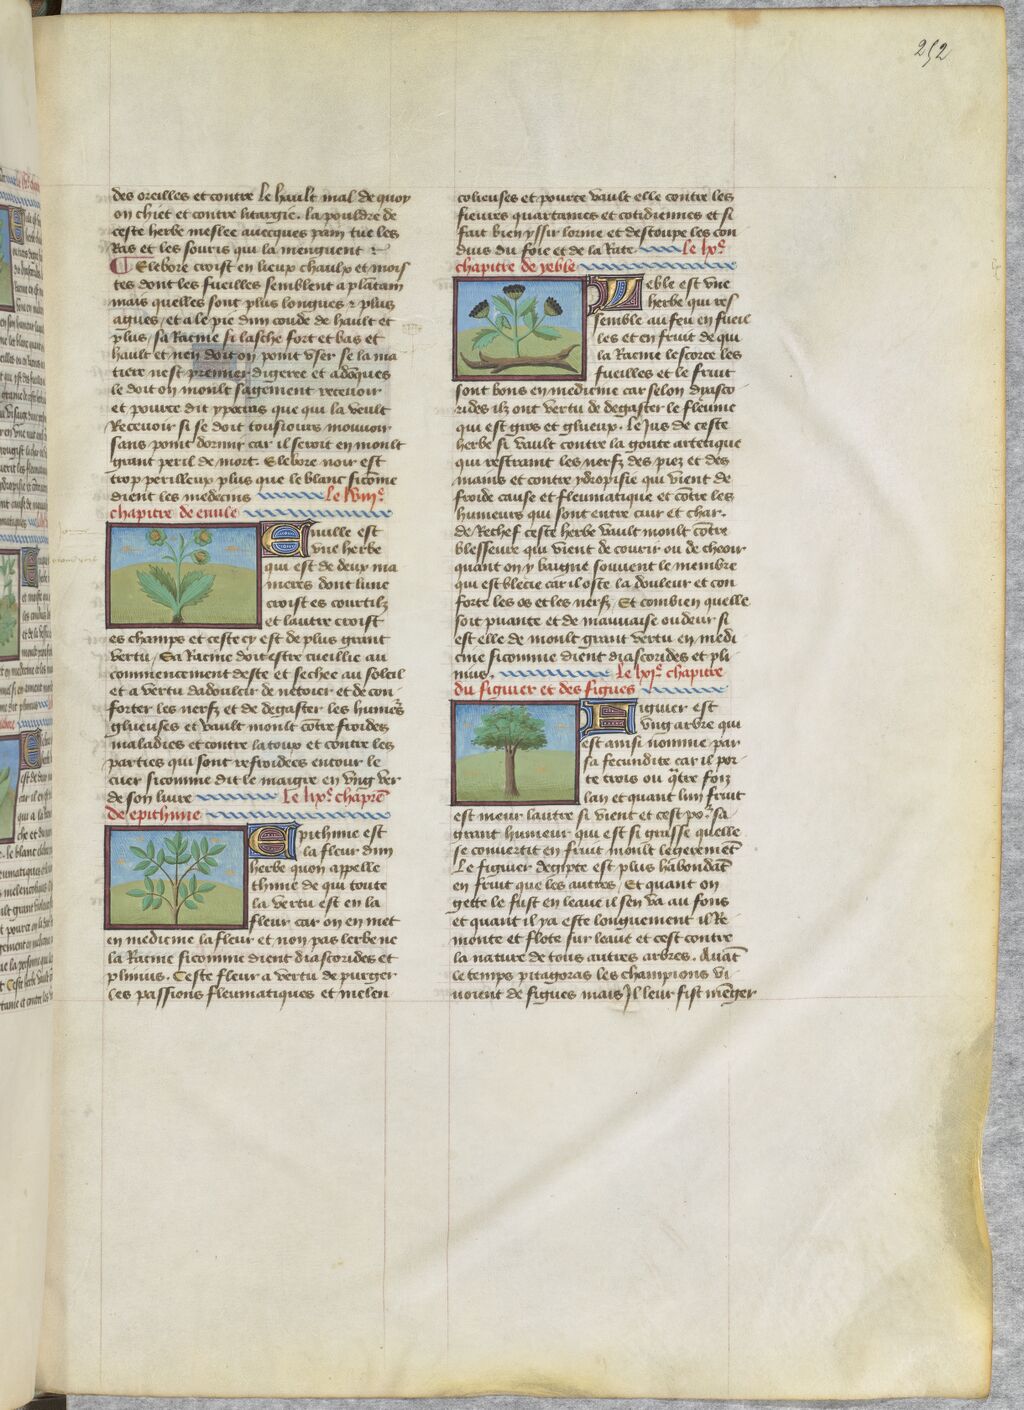 252
des oreilles et contre le hault mal de quoy
on chiet et contre litargie. la pouldre de
ceste herbe meslee avecques pain tue les
Ras et les souris qui la menguent
Elebore croist en lieux chaulx et mois
tes dont les fueilles semblent a platain
mais quelles sont plus longues et plus
agues / et a le pie dun coude de hault et
plus / sa Racine si lasche fort et bas et
hault et nen doit on point user se la ma
tiere nest premier digeree et adoques
le doit on moult sagement recevoir
et pource dit ypocras que qui la veult
Recevoir si se doit tousiours mouvoir
sans point dormir car il seroit en moult
grant peril de mort. Elebore noir est
trop perilleux plus que le blanc sicome
dient les medecins Le lviiie
chapitre de enule
Enulle est
une herbe
qui est de deux ma
nieres dont lune
croist es courtilz
et lautre croist
es champs et ceste cy est de plus grant
vertu / Sa Racine doit estre cueillie au
commencement deste et sechee au soleil
et a vertu dadoulcir de netoier et de con
forter les nerfz et de degaster les humers
glueuses et vault moult cotre froides
maladies et contre la toux et contre les
parties qui sont refroidees entour le
cuer sicomme dit le maigre en ung ver
de son livre Le lixe chapre
de epithime
Epithime est
la fleur dun
herbe quon appelle
thime de qui toute
la vertu est en la
fleur car on en met
en medicine la fleur et non pas lerbe ne
la Racine sicomme dient diascorides et
plinius. Ceste fleur a vertu de purger
les passions fleumatiques et melen
colieuses et pource vault elle contre les
fievres quartaines et cotidiennes et si
fait bien yssir lorine et destoupe les con
duis du foie et de la Rate Le lxe
chapitre de yeble
Yeble est une
herbe qui res
semble au feu en fueil
les et en fruit de qui
la Racine lescorce les
fueilles et le fruit
sont bons en medicine car selon dyasco
rides ilz ont vertu de degaster le fleume
qui est gros et glueux. Le Jus de ceste
herbe si vault contre la goute artetique
qui restraint les nerfz des piez et des
mains et contre ydropisie qui vient de
froide cause et fleumatique et cotre les
humeurs qui sont entre cuir et char.
de Rechef ceste herbe vault moult cotre
blesseure qui vient de courir ou de cheoir
quant on y baigne souvent le membre
qui est blecie car il oste la douleur et con
forte les os et les nerfz / Et combien quelle
soit puante et de mauvaise oudeur si
est elle de moult grant vertu en medi
cine sicomme dient diascorides et pli
nius. Le lxie chapitre
du figuier et des figues
Figuier est
ung arbre qui
est ainsi nomme par
sa fecundite car il por
te trois ou qtre foiz
lan et quant lun fruit
est meur lautre si vient et cest por sa
grant humeur qui est si grasse quelle
se convertit en fruit moult legerement
Le figuier degipte est plus habondat
en fruit que les autres / Et quant on
gette le fust en leaue il sen va au fons
et quant il y a este longuement il Re
monte et flote sur leaue et cest contre
la nature de tous autres arbres. Avat
le temps pitagoras les champions vi
voient de figues mais Jl leur fist meger